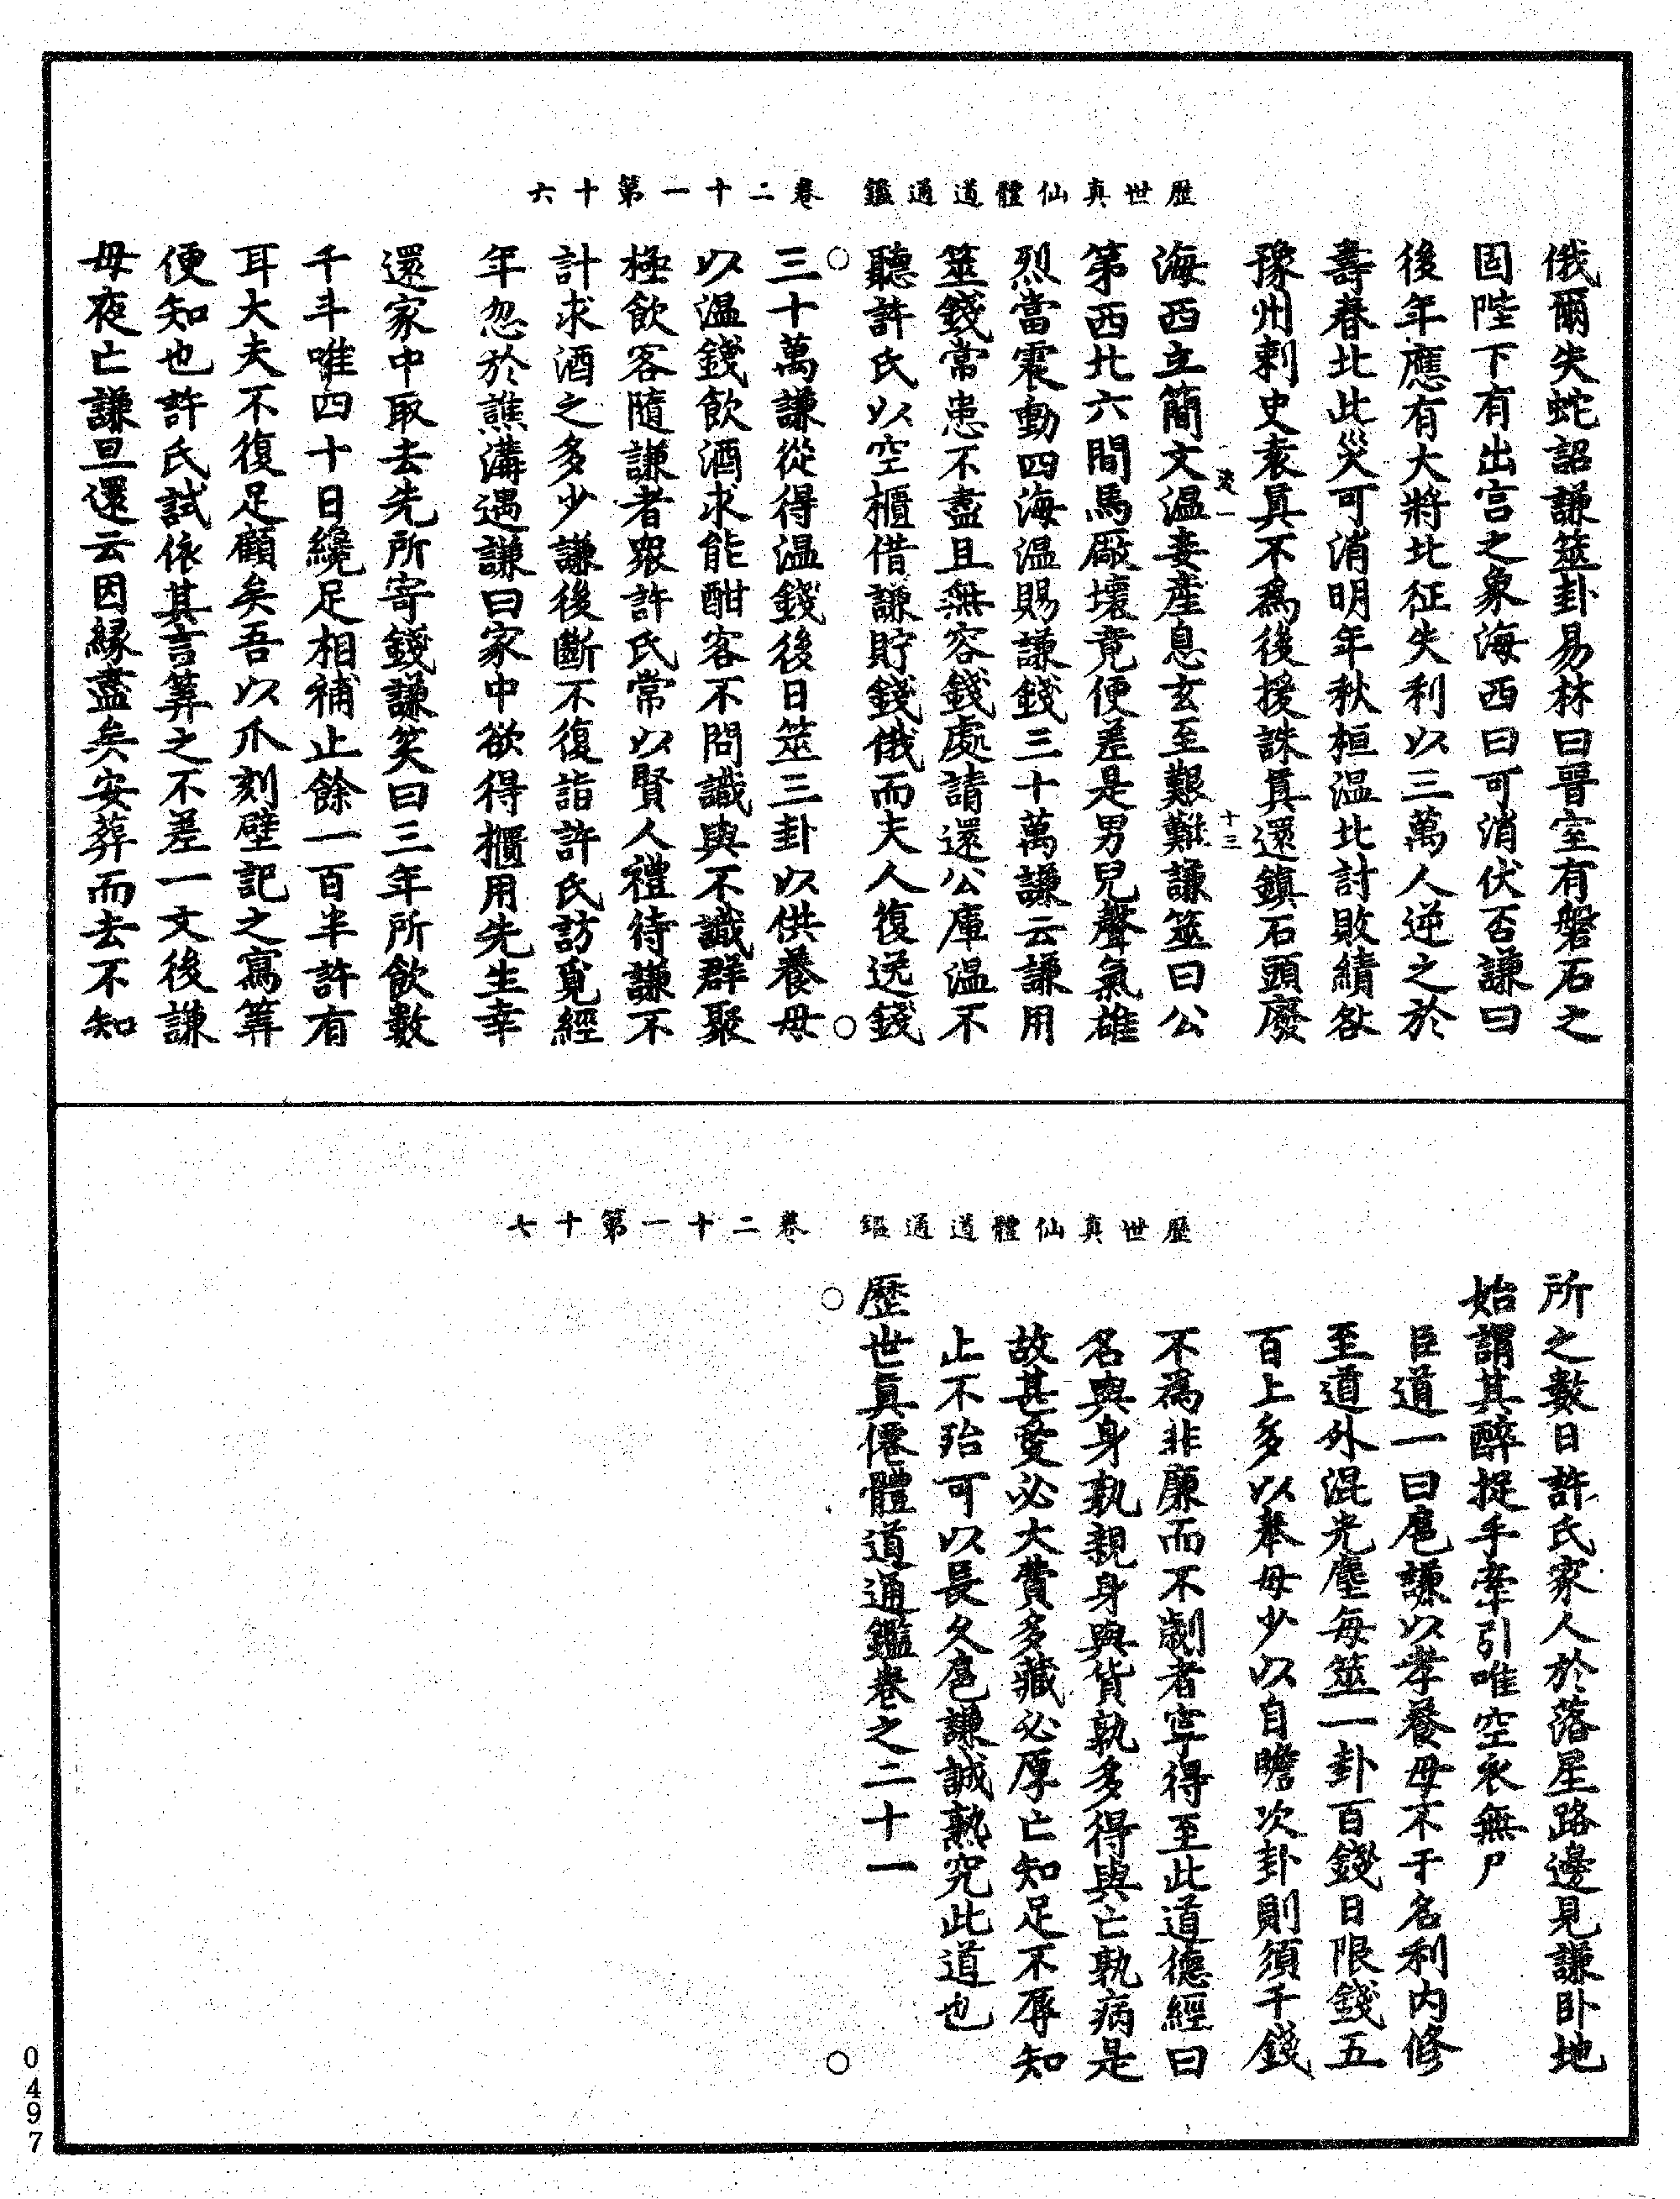 歷世真仙體道通鑑　卷二十一第十六
俄爾失蛇詔謙筮卦易林曰晉室有磐石之
固陛下有出宮之象海西曰可消伏否謙曰
後年應有大將北征失利以三萬人逆之於
壽春北此災可消明年秋桓温北討敗績咎
豫州刺史袁真不爲後援誅真還鎮石頭廢
十三
海西立簡文温妾產息玄至艱難謙筮曰公
第西北六間馬廄壞竟便差是男兒聲氣雄
烈當震動四海温賜謙錢三十萬謙云謙用
筮錢常患不盡且無容錢處請還公庫温不
聽許氏以空櫃借謙貯錢俄而夫人復送錢
三十萬謙從得温錢後日筮三卦以供養母
以温錢飲酒求能酣客不問識與不識群聚
極飲客隨謙者衆許氏常以賢人禮待謙不
計求酒之多少謙後斷不復詣許氏訪覓經
年忽於譙溝遇謙曰家中欲得櫃用先生幸
還家中取去先所寄錢謙笑曰三年所飲數
千斗唯四十日纔足相補止餘一百半許有
耳大夫不復足顧矣吾以爪刻壁記之寫筭
便知也許氏試依其言筭之不差一文後謙
母夜亡謙旦還云因緣盡矣安葬而去不知
歷世真仙體道通鑑　卷二十一第十七
所之數日許氏家人於落星路邊見謙卧地
始謂其醉捉手牽引唯空衣無尸
臣道一曰扈謙以孝養母不干名利内修
至道外混光塵每筮一卦百錢日限錢五
百上多以奉母少以自贍次卦則須千錢
不為非廉而不劌者寧得至此道德經曰
名與身孰親身與貨孰多得與亡孰病是
故甚愛必大費多藏必厚亡知足不辱知
止不殆可以長久扈謙誠熟究此道也
歷世真僊體道通鑑卷之二十一
0497